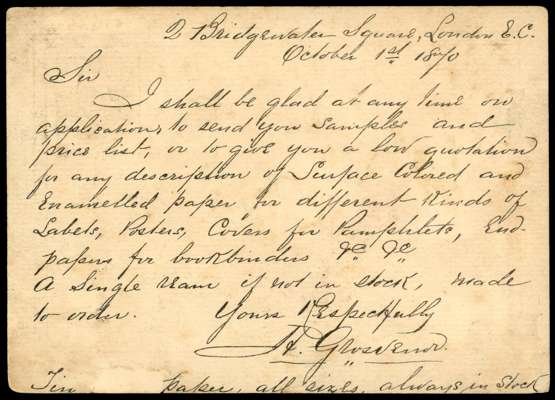 2 Bridgewater Square, London E.C.
October 1st 1870
Sir
I shall be glad at any time on
application, to send you samples and
price list, or to give you a low quotation
for any description of Surface Colored and
Enamelled paper for different Kinds of
Labels, Posters, Covers for Pamphlets, End-
papers for bookbinders &c &c
A Single ream if not in stock, made
to order.
Yours Respectfully
H. Grosvenor.
paper, all sizes, always in stock